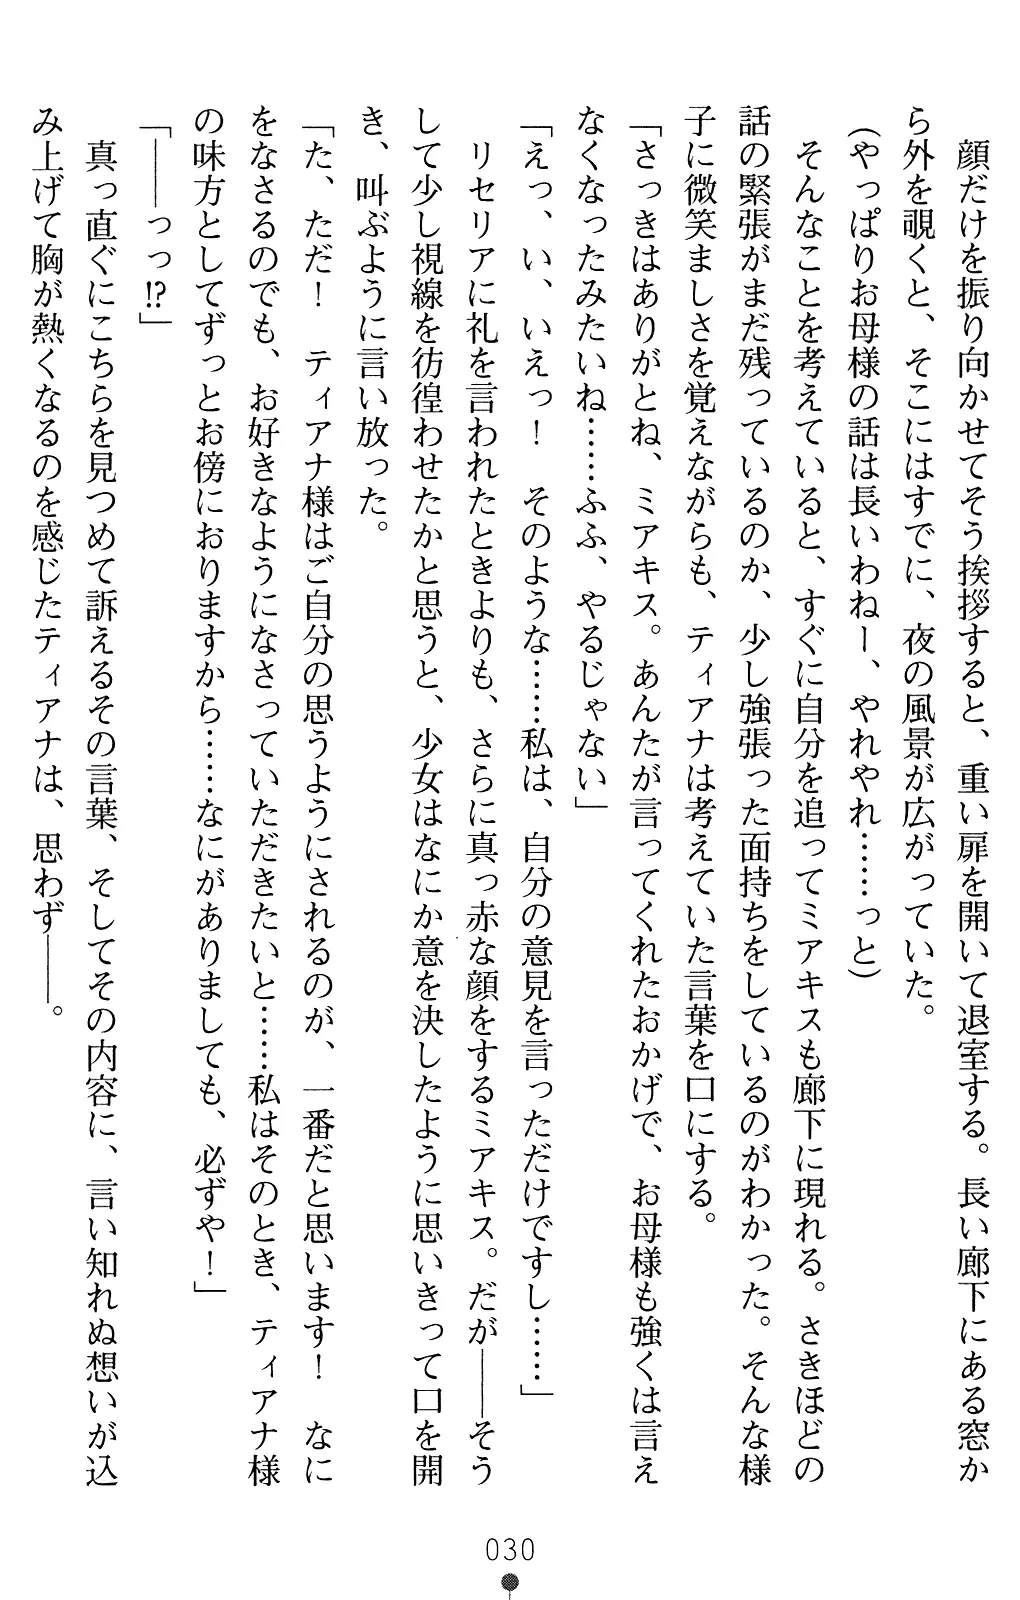 顔だけを振り向かせてそう挨拶すると、重い扉を開いて退室する。長い廊下にある窓か
ら外を覗くと、そこにはすでに、夜の風景が広がっていた。
（やっぱりお母様の話は長いわねー、やれやれ……っと）
　そんなことを考えていると、すぐに自分を追ってミアキスも廊下に現れる。さきほどの
話の緊張がまだ残っているのか、少し強張った面持ちをしているのがわかった。そんな様
子に微笑ましさを覚えながらも、ティアナは考えていた言葉を口にする。
「さっきはありがとね、ミアキス。あんたが言ってくれたおかげで、お母様も強くは言え
なくなったみたいね……ふふ、やるじゃない」
「えっ、い、いえっ！　そのような……私は、自分の意見を言っただけですし……」
　リセリアに礼を言われたときよりも、さらに真っ赤な顔をするミアキス。だが――そう
して少し視線を彷徨わせたかと思うと、少女はなにか意を決したように思いきって口を開
き、叫ぶように言い放った。
「た、ただ！　ティアナ様はご自分の思うようにされるのが、一番だと思います！　なに
をなさるのでも、お好きなようになさっていただきたいと……私はそのとき、ティアナ様
の味方としてずっとお傍におりますから……なにがありましても、必ずや！」
「――っっ!?」
　真っ直ぐにこちらを見つめて訴えるその言葉、そしてその内容に、言い知れぬ想いが込
み上げて胸が熱くなるのを感じたティアナは、思わず――。
030